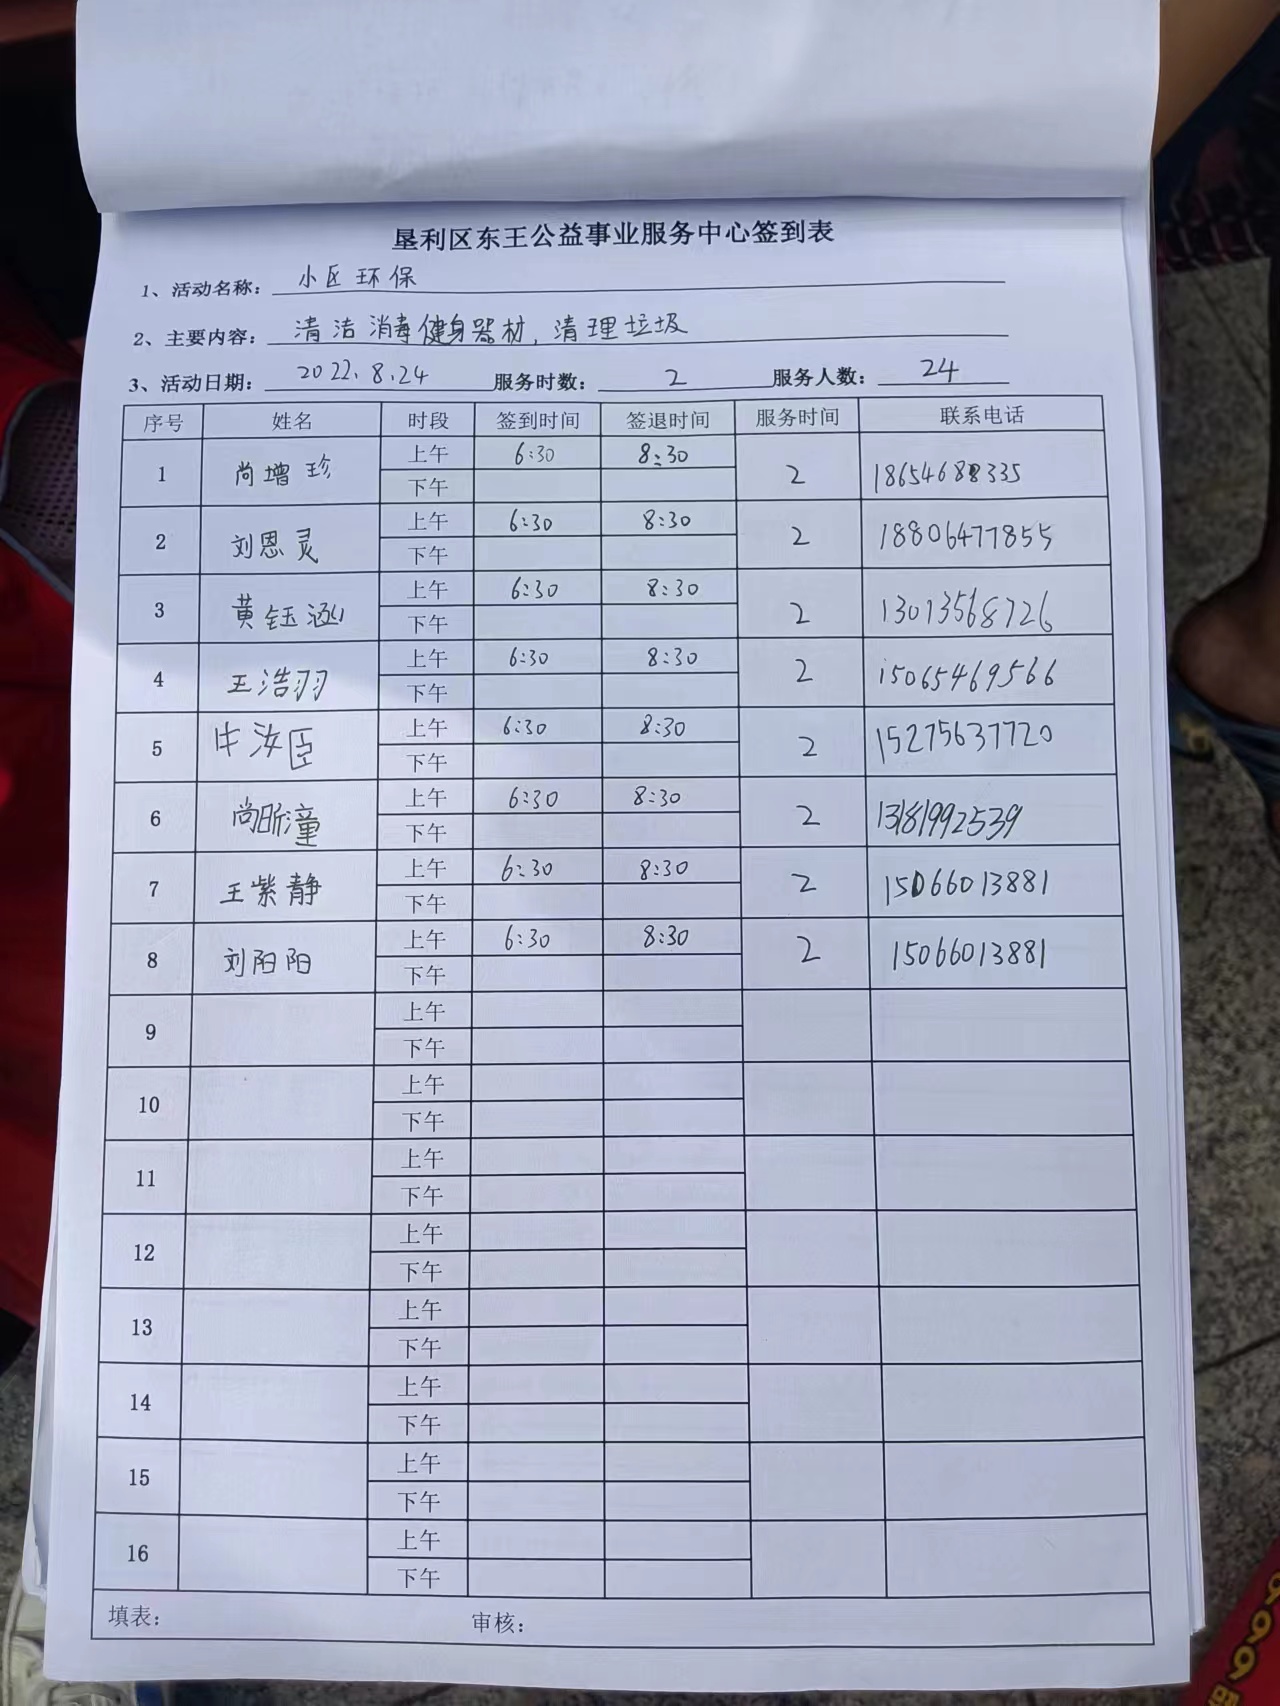 垦利区东王公益事业服务中心签到表
1、活动名称：小区环保
2、主要内容：清洁消毒健身器材，清理垃圾
3、活动日期：2022.8.24 服务时数：2 服务人数：24
序号 姓名 时段 签到时间 签退时间 服务时间 联系电话
1 尚增珍 上午 6:30 8:30 2 18654688335
下午
2 刘恩灵 上午 6:30 8:30 2 18806477855
下午
3 黄钰涵 上午 6:30 8:30 2 13013568726
下午
4 王浩羽 上午 6:30 8:30 2 15065469566
下午
5 牛汝臣 上午 6:30 8:30 2 15275637720
下午
6 尚昕潼 上午 6:30 8:30 2 13181992539
下午
7 王紫静 上午 6:30 8:30 2 15066013881
下午
8 刘阳阳 上午 6:30 8:30 2 15066013881
下午
9 上午
下午
10 上午
下午
11 上午
下午
12 上午
下午
13 上午
下午
14 上午
下午
15 上午
下午
16 上午
下午
填表： 审核：